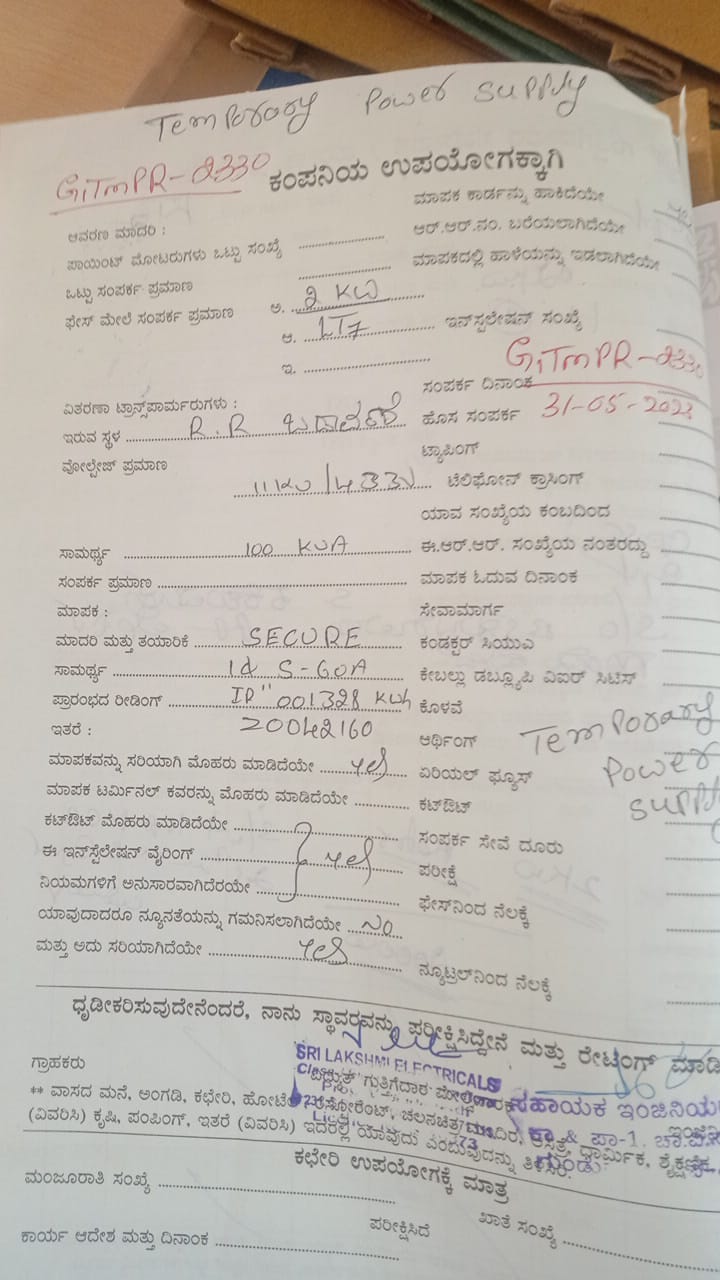 Temporary Power Supply
GiTmPR-2330 ಕಂಪನಿಯ ಉಪಯೋಗಕ್ಕಾಗಿ
ಮಾಪಕ ಕಾರ್ಡನ್ನು ಹಾಕಿದೆಯೇ
ಆವರಣ ಮಾದರಿ :
ಆರ್.ಆರ್.ನಂ. ಬರೆಯಲಾಗಿದೆಯೇ
ಪಾಯಿಂಟ್ ಮೋಟರುಗಳು ಒಟ್ಟು ಸಂಖ್ಯೆ
ಮಾಪಕದಲ್ಲಿ ಹಾಳೆಯನ್ನು ಇಡಲಾಗಿದೆಯೇ
ಒಟ್ಟು ಸಂಪರ್ಕ ಪ್ರಮಾಣ
ಫೇಸ್ ಮೇಲೆ ಸಂಪರ್ಕ ಪ್ರಮಾಣ ಅ. 2 KW
ಆ. LT7 ಇನ್‌ಸ್ಟಲೇಷನ್ ಸಂಖ್ಯೆ
ಇ. GiTmPR-2330
ಸಂಪರ್ಕ ದಿನಾಂಕ
ವಿತರಣಾ ಟ್ರಾನ್ಸ್‌ಫಾರ್ಮರುಗಳು :
ಇರುವ ಸ್ಥಳ R.R ಹೊಸ ಸಂಪರ್ಕ 31-05-2023
ವೋಲ್ಟೇಜ್ ಪ್ರಮಾಣ ಟ್ಯಾಪಿಂಗ್
11KV/433V ಟೆಲಿಫೋನ್ ಕ್ರಾಸಿಂಗ್
ಯಾವ ಸಂಖ್ಯೆಯ ಕಂಬದಿಂದ
ಸಾಮರ್ಥ್ಯ 100 KVA ಈ.ಆರ್.ಆರ್. ಸಂಖ್ಯೆಯ ನಂತರದ್ದು
ಸಂಪರ್ಕ ಪ್ರಮಾಣ ಮಾಪಕ ಓದುವ ದಿನಾಂಕ
ಮಾಪಕ : ಸೇವಾಮಾರ್ಗ
ಮಾದರಿ ಮತ್ತು ತಯಾರಿಕೆ SECURE ಕಂಡಕ್ಟರ್ ಸಿಯುಎ
ಸಾಮರ್ಥ್ಯ 5-60A ಕೇಬಲ್ಲು ಡಬ್ಲ್ಯೂಪಿ ವಿಐರ್ ಸಿಟಿಸ್
ಪ್ರಾರಂಭದ ರೀಡಿಂಗ್ IR" 001328 KWh ಕೊಳವೆ
ಇತರೆ : 20042160 ಅರ್ಥಿಂಗ್ Temporary
ಮಾಪಕವನ್ನು ಸರಿಯಾಗಿ ಮೊಹರು ಮಾಡಿದೆಯೇ yes ಏರಿಯಲ್ ಫ್ಯೂಸ್ Power
ಮಾಪಕ ಟರ್ಮಿನಲ್ ಕವರನ್ನು ಮೊಹರು ಮಾಡಿದೆಯೇ ಕಟ್‌ಔಟ್
ಕಟ್‌ಔಟ್ ಮೊಹರು ಮಾಡಿದೆಯೇ ಸಂಪರ್ಕ ಸೇವೆ ದೂರು
ಈ ಇನ್‌ಸ್ಟೆಲೇಷನ್ ವೈರಿಂಗ್ yes ಪರೀಕ್ಷೆ
ನಿಯಮಗಳಿಗೆ ಅನುಸಾರವಾಗಿದೆರಯೇ ಫೇಸ್‌ನಿಂದ ನೆಲಕ್ಕೆ
ಯಾವುದಾದರೂ ನ್ಯೂನತೆಯನ್ನು ಗಮನಿಸಲಾಗಿದೆಯೇ No
ಮತ್ತು ಅದು ಸರಿಯಾಗಿದೆಯೇ Yes ನ್ಯೂಟ್ರಲ್‌ನಿಂದ ನೆಲಕ್ಕೆ
ಧೃಡೀಕರಿಸುವುದೇನೆಂದರೆ, ನಾನು ಸ್ಥಾವರವನ್ನು ಪರೀಕ್ಷಿಸಿದ್ದೇನೆ ಮತ್ತು ರೇಟಿಂಗ್
ಗ್ರಾಹಕರು SRI LAKSHMI ELECTRICALS
ವಿದ್ಯುತ್ ಗುತ್ತಿಗೆದಾರ ಸಹಾಯಕ
** ವಾಸದ ಮನೆ, ಅಂಗಡಿ, ಕಛೇರಿ,
(ವಿವರಿಸಿ) ಕೃಷಿ, ಪಂಪಿಂಗ್, ಇತರೆ (ವಿವರಿಸಿ) ಇದರಲ್ಲಿ ಯಾವುದು
ಕಛೇರಿ ಉಪಯೋಗಕ್ಕೆ ಮಾತ್ರ
ಮಂಜೂರಾತಿ ಸಂಖ್ಯೆ ಪರೀಕ್ಷಿಸಿದೆ ಖಾತೆ ಸಂಖ್ಯೆ
ಕಾರ್ಯ ಆದೇಶ ಮತ್ತು ದಿನಾಂಕ